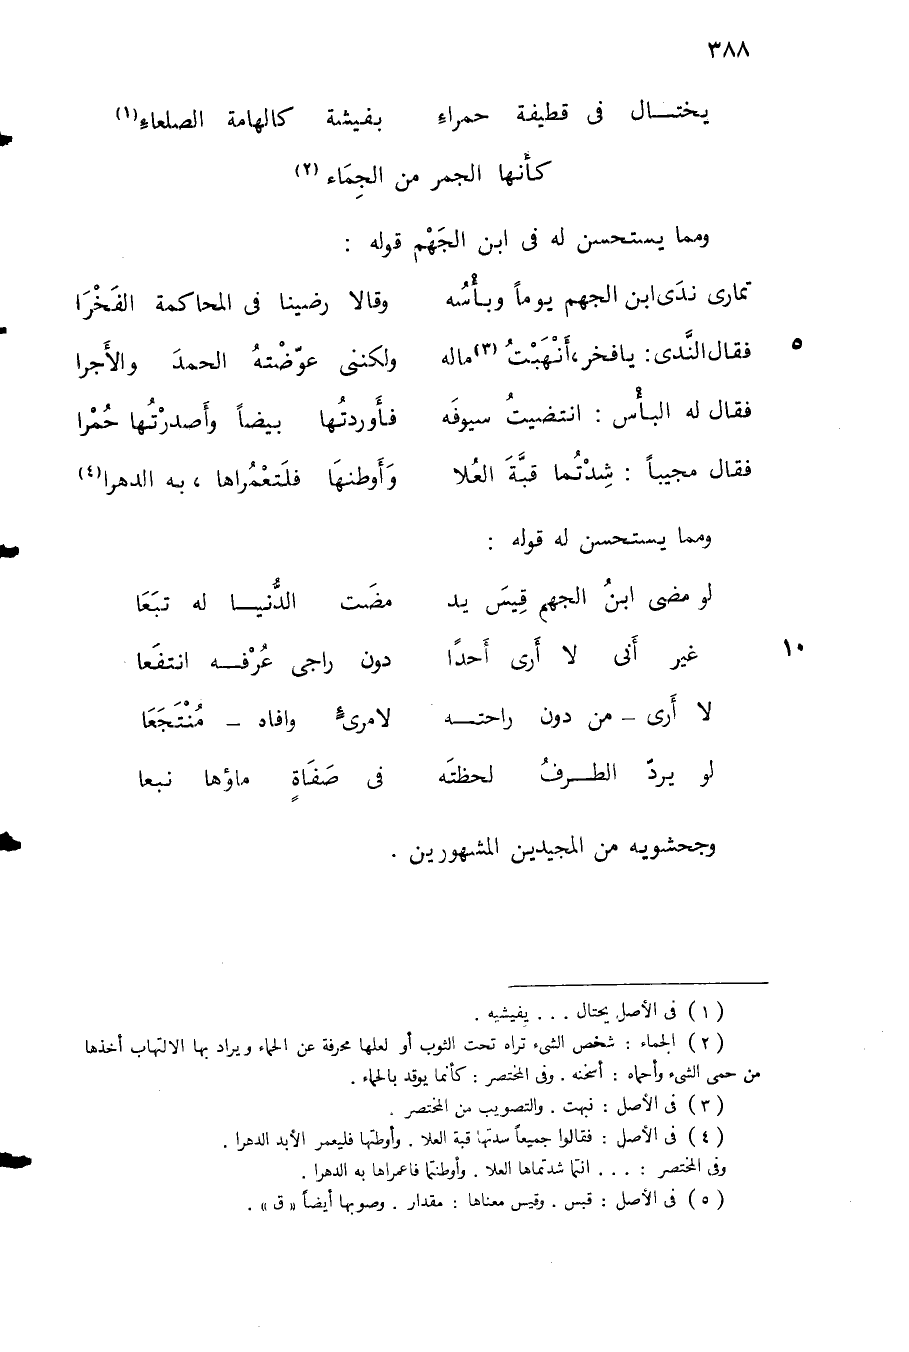 ٣٨٨
يختـــال فى قطيفة حمراءِ بفيشة كالهامة الصلعاءِ(١)
كأنها الجمر من الجِمَاء (٢)
ومما يستحسن له فى ابن الجَهْم قوله :
تمارى ندَى ابن الجهم يوماً وبأْسُه وقالا رضينا فى المحاكمة الفَخْرَا
٥ فقال النَّدى : يا فخر ، أَنْهَبْتُ (٣) ماله ولكننى عوّضْتهُ الحمدَ والأَجرا
فقال له البأْس : انتضيتُ سيوفَه فأَوردتُها بيضاً وأَصدرْتُها حُمْرا
فقال مجيباً : شِدْتُما قبَّةَ العُلا وَأَوطنهَا فلَتعْمُراها ، به الدهرا(٤)
ومما يستحسن له قوله :
لو مضى ابنُ الجهمِ قِيسَ يد مضَت الدُّنيـــا له تبَعَا
١٠ غير أَنى لا أَرى أَحدًا دون راجى عُرْفـــه انتفَعا
لا أَرى – من دون راحتـــه لامرىءٍ وافاه – مُنْتَجَعَا
لو يردّ الطـــرفُ لحظتَه فى صَفَاةٍ ماؤها نبعا
وجحشويه من المجيدين المشهورين .
( ١ ) فى الأصل يحتال . . . يفيشيه .
( ٢ ) الجماء : شخص الشىء تراه تحت الثوب أو لعلها محرفة عن الحماء ويراد بها الالتهاب أخذها
من حمى الشىء وأحماه : أسخنه . وفى المختصر : كأنما يوقد بالحماء .
( ٣ ) فى الأصل : نبهت . والتصويب من المختصر .
( ٤ ) فى الأصل : فقالوا جميعاً سدتها قبة العلا . وأوطتها فليعمر الأبد الدهرا .
وفى المختصر : . . . انتما شدتماها العلا . وأوطنتما فاعمراها به الدهرا .
( ٥ ) فى الأصل : قبس . وقيس معناها : مقدار . وصوبها أيضاً « ق » .